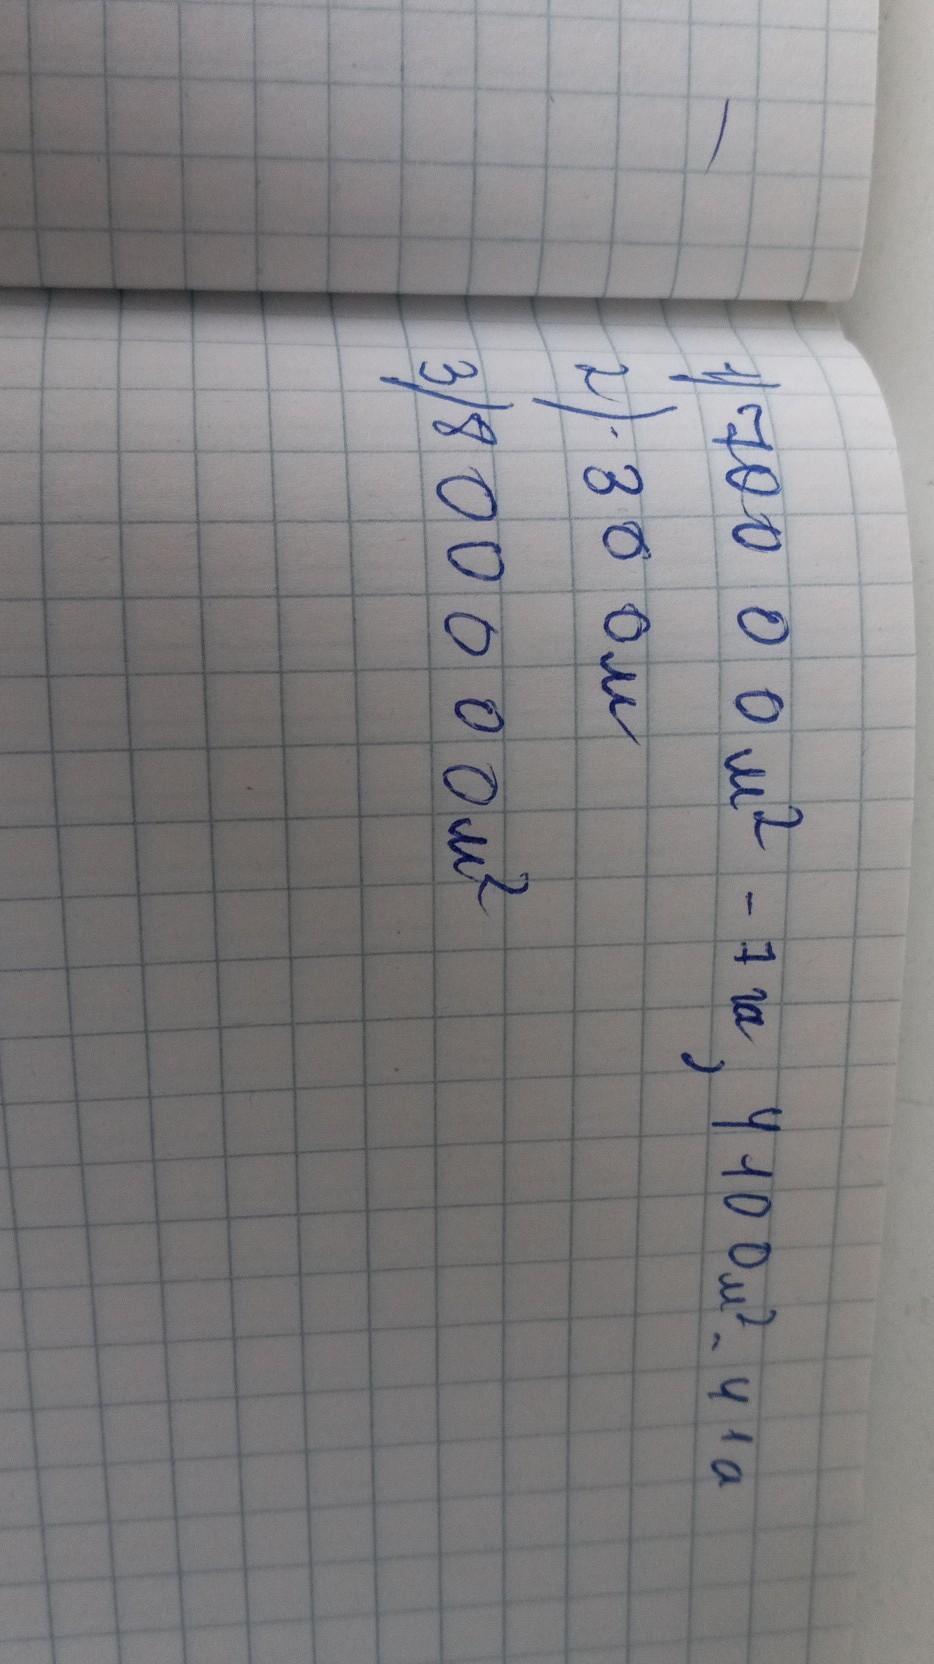 1) 70000м² - 7га, 4100м² - 41а
2) 300м
3) 800000м²